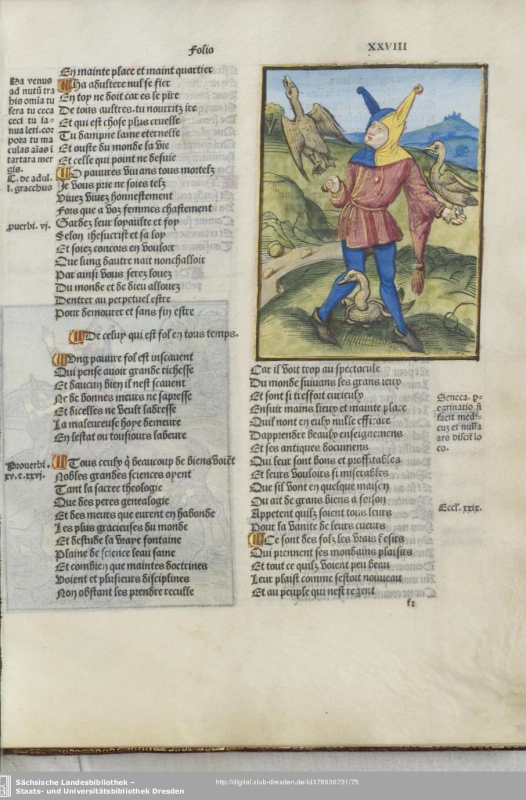 Folio
XXVIII
En mainte place et maint quartier
Ha adultere nul se fier
En toy ne doit car es le pire
De tous austres tu nourritz ire
Et qui est chose plus cruelle
Tu dampne lame eternelle
Et ouste du monde la vie
Et celle qui point ne desuie
O pauures viuans tous mortelz
Je vous prie ne soies telz
Viuez viuez honnestement
Fors que a voz femmes chastement
Gardez leur loyaulte et foy
Selon ihesucrist et sa loy
Et soiez concors en vouloir
Que lung dautre nait nonchalloir
Par ainsi vous serez louez
Du monde et de dieu allouez
Dentrer au perpetuel estre
Pour demourer et sans fin estre
De celuy qui est fol en tous temps.
Ung pauure fol est inscauent
Qui pense auoir grande richesse
Et daucun bien il nest scauent
Ne de bonnes meurs ne sapresse
Et dicelles ne veult ladresse
La maleureuse hoye demeure
En lestat ou tousiours labeure
Tous ceulx q beaucoup de biens voiet
Nobles grandes sciences oyent
Tant la sacree theologie
Que des peres genealogie
Et des meurs que eurent en habonde
Les plus gracieuses du monde
Et destude la vraye fontaine
Plaine de science leau saine
Et combien que maintes doctrines
Voient et plusieurs disciplines
Non obstant les prendre reculle
Car il voit trop au spectacule
Du monde suiuans les grans ieux
Et sont si tressort curieulx
Ensuir mains lieux et mainte place
Quil nont en eulx nulle efficace
Dapprendre beaulx enseignemens
Et ses antiques documens
Qui leur sont bons et prouffitables
Et leurs vouloirs si miserables
Que sil vont en quelque maison
Ou ait de grans biens a foison
Appetent quilz soient tous leurs
Pour la vanite de leurs cueurs
Ce sont des folz les vrais desirs
Qui prennent ses mondains plaisirs
Et tout ce quilz voient peu beau
Leur plaist comme sestoit nouueau
Et au peuple qui nest regent
f2
ad nutū tra
C. de adul.
l. gracchus
puerbi. vj.
Prouerbi.
xv. t. xxvj.
Seneca. p-
egrinatio n
facit medi-
cuz et nulla
ars discit lo
co.
Eccl. xxix.
Sächsische Landesbibliothek –
Staats- und Universitätsbibliothek Dresden
http://digital.slub-dresden.de/id378636731/75